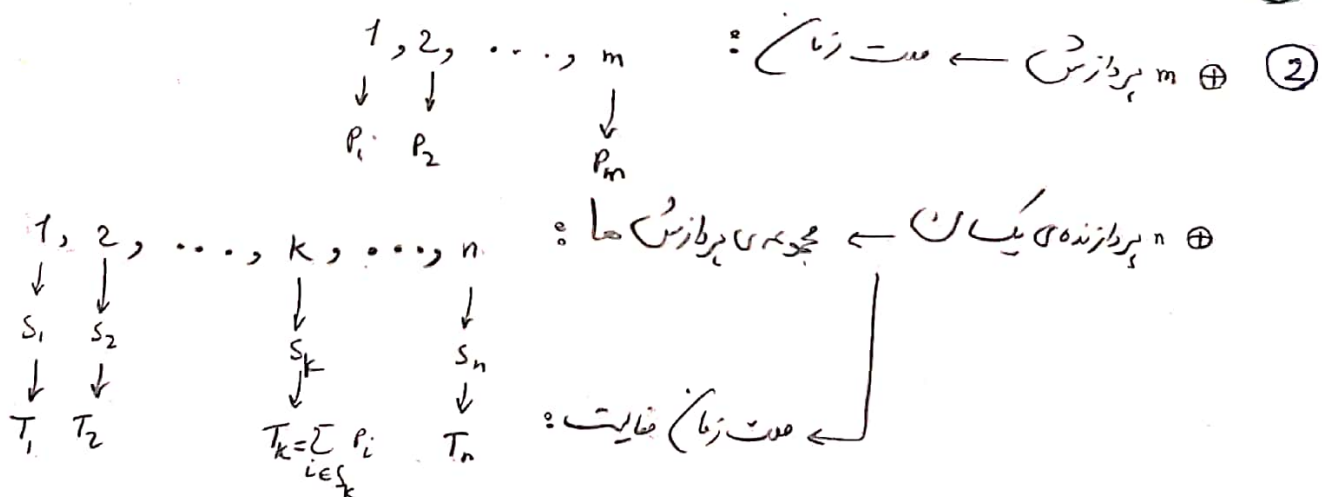 ② ⊕ m پردازش ← مدت زمان : 1, 2, ..., m
↓ ↓ ↓
P₁ P₂ Pₘ
⊕ n پردازنده‌ی یکسان ← مجموعه‌ی پردازش ها : 1, 2, ..., k, ..., n
↓ ↓ ↓ ↓
S₁ S₂ Sₖ Sₙ
↓ ↓ ↓ ↓
مدت زمان فعالیت : T₁ T₂ Tₖ=∑ Pᵢ Tₙ
i∈Sₖ